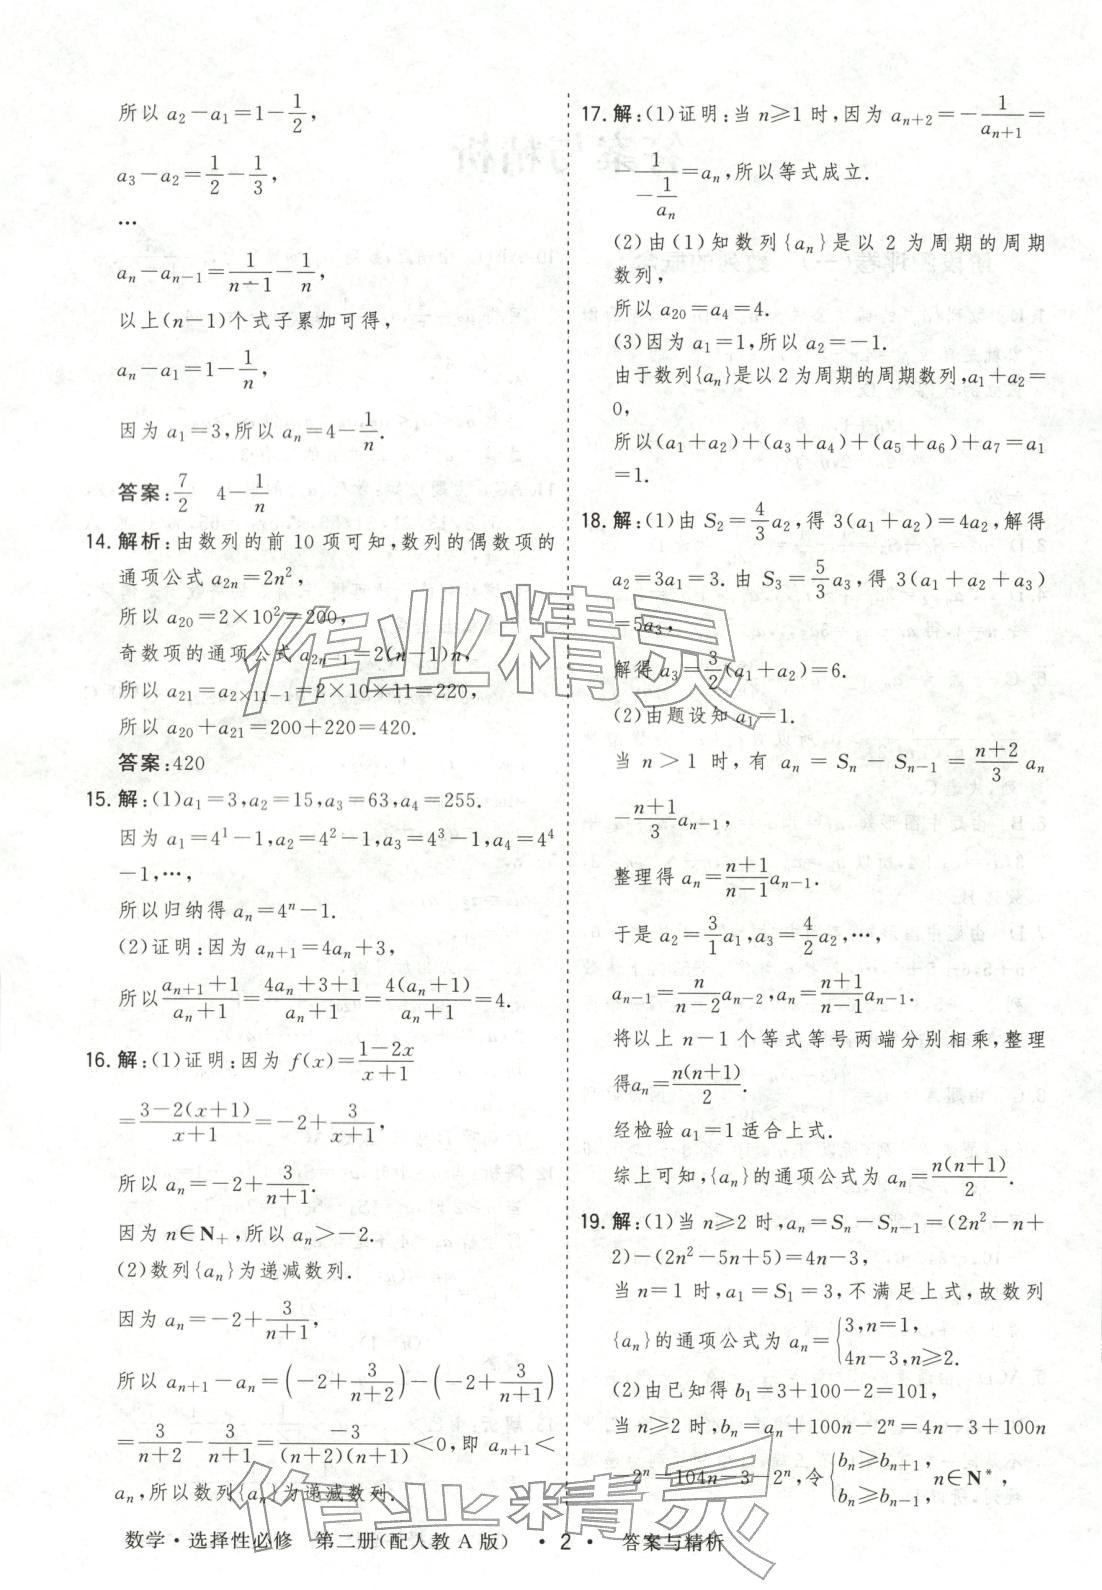 所以 a₂-a₁=1-1/2,
a₃-a₂=1/2-1/3,
…
aₙ-aₙ₋₁=1/(n-1)-1/n,
以上(n-1)个式子累加可得,
aₙ-a₁=1-1/n,
因为 a₁=3,所以 aₙ=4-1/n.
答案:7/2　4-1/n
14.解析:由数列的前 10 项可知,数列的偶数项的
通项公式 a₂ₙ=2n²,
所以 a₂₀=2×10²=200,
奇数项的通项公式 a₂ₙ₋₁=2(n-1)n,
所以 a₂₁=a₂ₓ₁₁₋₁=2×10×11=220,
所以 a₂₀+a₂₁=200+220=420.
答案:420
15.解:(1)a₁=3,a₂=15,a₃=63,a₄=255.
因为 a₁=4¹-1,a₂=4²-1,a₃=4³-1,a₄=4⁴
-1,…,
所以归纳得 aₙ=4ⁿ-1.
(2)证明:因为 aₙ₊₁=4aₙ+3,
所以(aₙ₊₁+1)/(aₙ+1)=(4aₙ+3+1)/(aₙ+1)=4(aₙ+1)/(aₙ+1)=4.
16.解:(1)证明:因为 f(x)=(1-2x)/(x+1)
=(3-2(x+1))/(x+1)=-2+3/(x+1),
所以 aₙ=-2+3/(n+1).
因为 n∈N₊,所以 aₙ>-2.
(2)数列{aₙ}为递减数列.
因为 aₙ=-2+3/(n+1),
所以 aₙ₊₁-aₙ=(-2+3/(n+2))-(-2+3/(n+1))
=3/(n+2)-3/(n+1)=-3/((n+2)(n+1))<0,即 aₙ₊₁<
aₙ,所以数列{aₙ}为递减数列.
17.解:(1)证明:当 n≥1 时,因为 aₙ₊₂=-1/aₙ₊₁=
1/(-1/aₙ)=aₙ,所以等式成立.
(2)由(1)知数列{aₙ}是以 2 为周期的周期
数列,
所以 a₂₀=a₄=4.
(3)因为 a₁=1,所以 a₂=-1.
由于数列{aₙ}是以 2 为周期的周期数列,a₁+a₂=
0,
所以(a₁+a₂)+(a₃+a₄)+(a₅+a₆)+a₇=a₁
=1.
18.解:(1)由 S₂=4/3a₂,得 3(a₁+a₂)=4a₂,解得
a₂=3a₁=3. 由 S₃=5/3a₃,得 3(a₁+a₂+a₃)
=5a₃,
解得 a₃=3/2(a₁+a₂)=6.
(2)由题设知 a₁=1.
当 n>1 时,有 aₙ=Sₙ-Sₙ₋₁=(n+2)/3 aₙ
-(n+1)/3 aₙ₋₁,
整理得 aₙ=(n+1)/(n-1)aₙ₋₁.
于是 a₂=3/1a₁,a₃=4/2a₂,…,
aₙ₋₁=n/(n-2)aₙ₋₂,aₙ=(n+1)/(n-1)aₙ₋₁.
将以上 n-1 个等式等号两端分别相乘,整理
得aₙ=n(n+1)/2.
经检验 a₁=1 适合上式.
综上可知,{aₙ}的通项公式为 aₙ=n(n+1)/2.
19.解:(1)当 n≥2 时,aₙ=Sₙ-Sₙ₋₁=(2n²-n+
2)-(2n²-5n+5)=4n-3,
当 n=1 时,a₁=S₁=3,不满足上式,故数列
{aₙ}的通项公式为 aₙ={3,n=1,
4n-3,n≥2.
(2)由已知得 b₁=3+100-2=101,
当 n≥2 时,bₙ=aₙ+100n-2ⁿ=4n-3+100n
-2ⁿ=104n-3-2ⁿ,令{bₙ≥bₙ₊₁,
bₙ≥bₙ₋₁, n∈N*,
作业精灵
作业精灵
数学·选择性必修　第二册(配人教 A 版)　· 2 ·　答案与精析